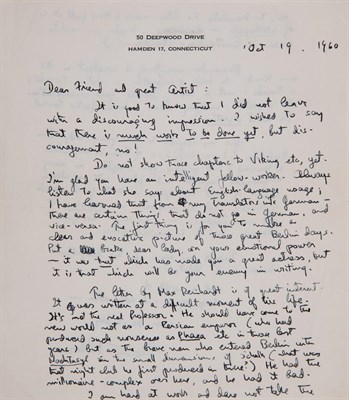 50 DEEPWOOD DRIVE
HAMDEN 17, CONNECTICUT
Oct 19. 1960
Dear Friend and great Artist:
It is good to know that I did not leave
with a discouraging impression. I wished to say
that there is much work to be done yet, but dis-
couragement, no!
Do not show those chapters to Viking etc, yet.
I'm glad you have an intelligent fellow-worker. Always
listen to what she says about English-language usage;
I have learned that from my translators into German –
there are certain things that do not go in German, and
vice-versa. The first thing is for you to make a
clear and evocative picture of those great Berlin days.
Put a brake, dear lady, on your emotional power
– it was that which has made you a great actress, but
it is that which will be your enemy in writing.
The letter by Max Reinhardt is of great interest.
It was written at a difficult moment of his life.
It's not the real Professor. He should have come to the
new world not as a Persian emperor (who had
produced such nonsense as Phaea etc in those last
years) but as the brave man who entered Berlin with
on the small dimensions of (what was
that night club he first produced in there?) He had the
millionaire-complex over here, and he had it bad.
I am hard at work and does not take the